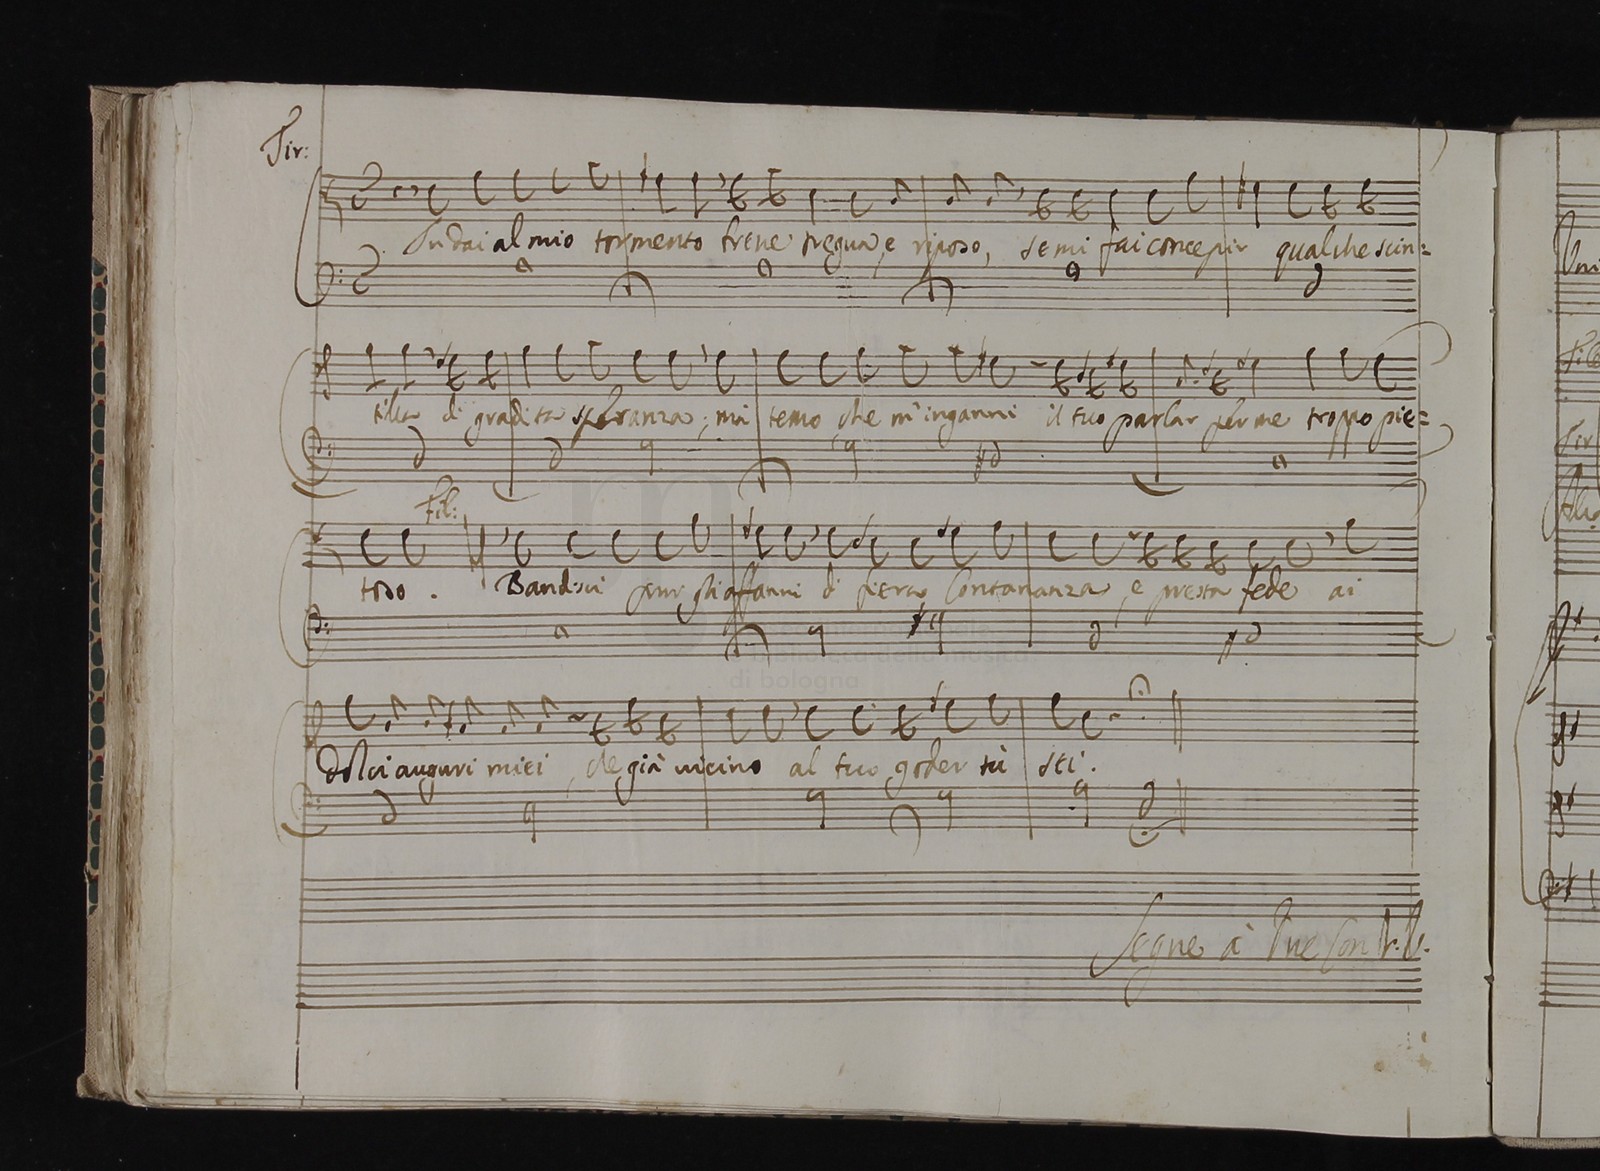 Tir:
Tu dai al mio tormento frene tregua, e riposo, se mi fai concepir qualche scin=
tilla di gradita speranza; mà temo, che m'inganni il tuo parlar per me troppo pie=
Fil:
toso. Bandisci pur gli affanni di fiera lontananza, e presta fede ai
dolci auguri miei, che già vicino al tuo goder tù sei.
Segue à Due con V.V.
Biblioteca della musica
di bologna
Fil
Tir